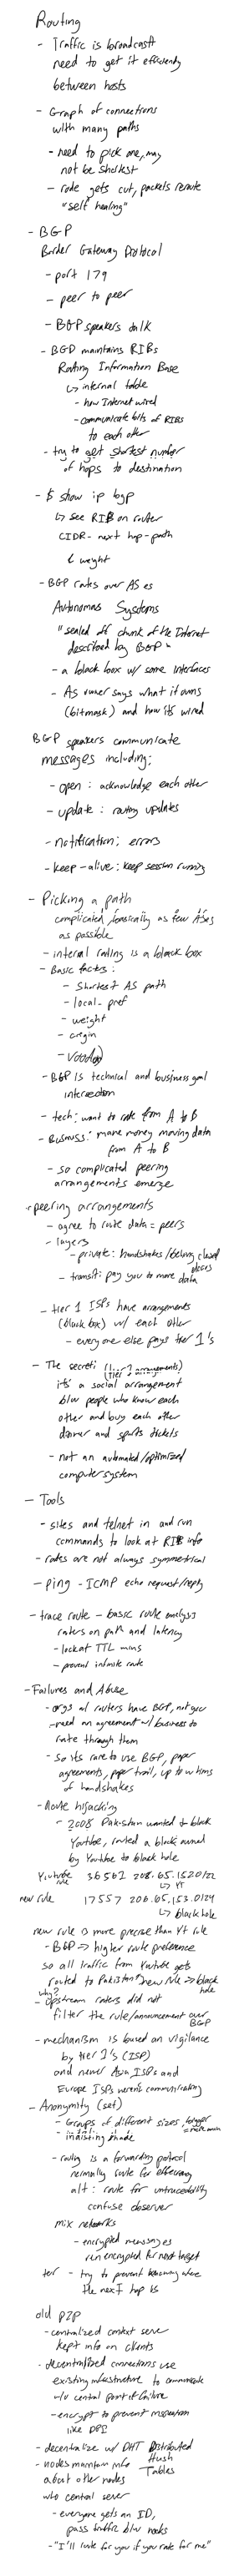 Routing
- Traffic is broadcast
need to get it efficiently
between hosts
- Graph of connections
with many paths
- need to pick one, may
not be shortest
- node gets cut, packets reroute
"self healing"
- BGP
Border Gateway Protocol
- port 179
- peer to peer
- BGP speakers talk
- BGP maintains RIBs
Routing Information Base
↳ internal table
- how Internet wired
- communicate bits of RIBs
to each other
- try to get shortest number
of hops to destination
- $ show ip bgp
↳ see RIB on router
CIDR - next hop - path
& weight
- BGP routes over ASes
Autonomous Systems
"sealed off chunk of the Internet
described by BGP"
- a black box w/ some interfaces
- AS owner says what it owns
(bitmask) and how its wired
BGP speakers communicate
messages including:
- open: acknowledge each other
- update: routing updates
- notification: errors
- keep-alive: keep session running
- Picking a path
complicated, basically as few ASes
as possible
- internal routing is a black box
- Basic factors:
- Shortest AS path
- local-pref
- weight
- origin
- voodoo
- BGP is technical and business goal
intersection
- tech: want to route from A to B
- Business: make money moving data
from A to B
- so complicated peering
arrangements emerge
- peering arrangements
- agree to route data = peers
- layers
- private: handshakes / closed
doors
- transit: pay you to move data
- tier 1 ISPs have arrangements
(black box) w/ each other
- everyone else pays tier 1's
- The secret: (tier 1 arrangements)
it's a social arrangement
b/w people who know each
other and buy each other
dinner and sports tickets
- not an automated/optimized
computer system
- Tools
- sites and telnet in and run
commands to look at RIB info
- routes are not always symmetrical
- ping - ICMP echo request/reply
- trace route - basic route analysis
raters on path and latency
- look at TTL
- prevent infinite route
- Failures and Abuse
- orgs w/ routers have BGP, not you
- need an agreement w/ business to
route through them
- so its rare to use BGP, paper
agreements, paper trail, up to whims
of handshakes
- Route hijacking
- 2008 Pakistan wanted to block
Youtube, routed a block owned
by Youtube to black hole
Youtube rule 36561 208.65.152.0/22
↳ YT
new rule 17557 208.65.153.0/24
↳ black hole
new rule is more precise than YT rule
- BGP => higher route preference
so all traffic from Youtube gets
routed to Pakistan new rule → black
hole
why?
- upstream routers did not
filter the rule/announcement over
BGP
- mechanism is based on vigilance
by tier 1's (ISP)
and newer Asia ISPs and
Europe ISPs weren't communicating
- Anonymity (set)
- Groups of different sizes, bigger
= more anon
- routing is a forwarding protocol
normally route for efficiency
alt: route for untraceability
confuse observer
mix networks
- encrypted messages
encrypted for next target
tor - try to prevent knowing where
the next hop is
old P2P
- centralized content server
kept info on clients
- decentralized connections use
existing infrastructure to communicate
w/o central point of failure
- encrypt to prevent inspection
like DPI
- decentralize w/ DHT Distributed
Hash
Tables
- nodes maintain info
about other nodes
w/o central server
- everyone gets an ID,
pass traffic b/w nodes
- "I'll route for you if you route for me"